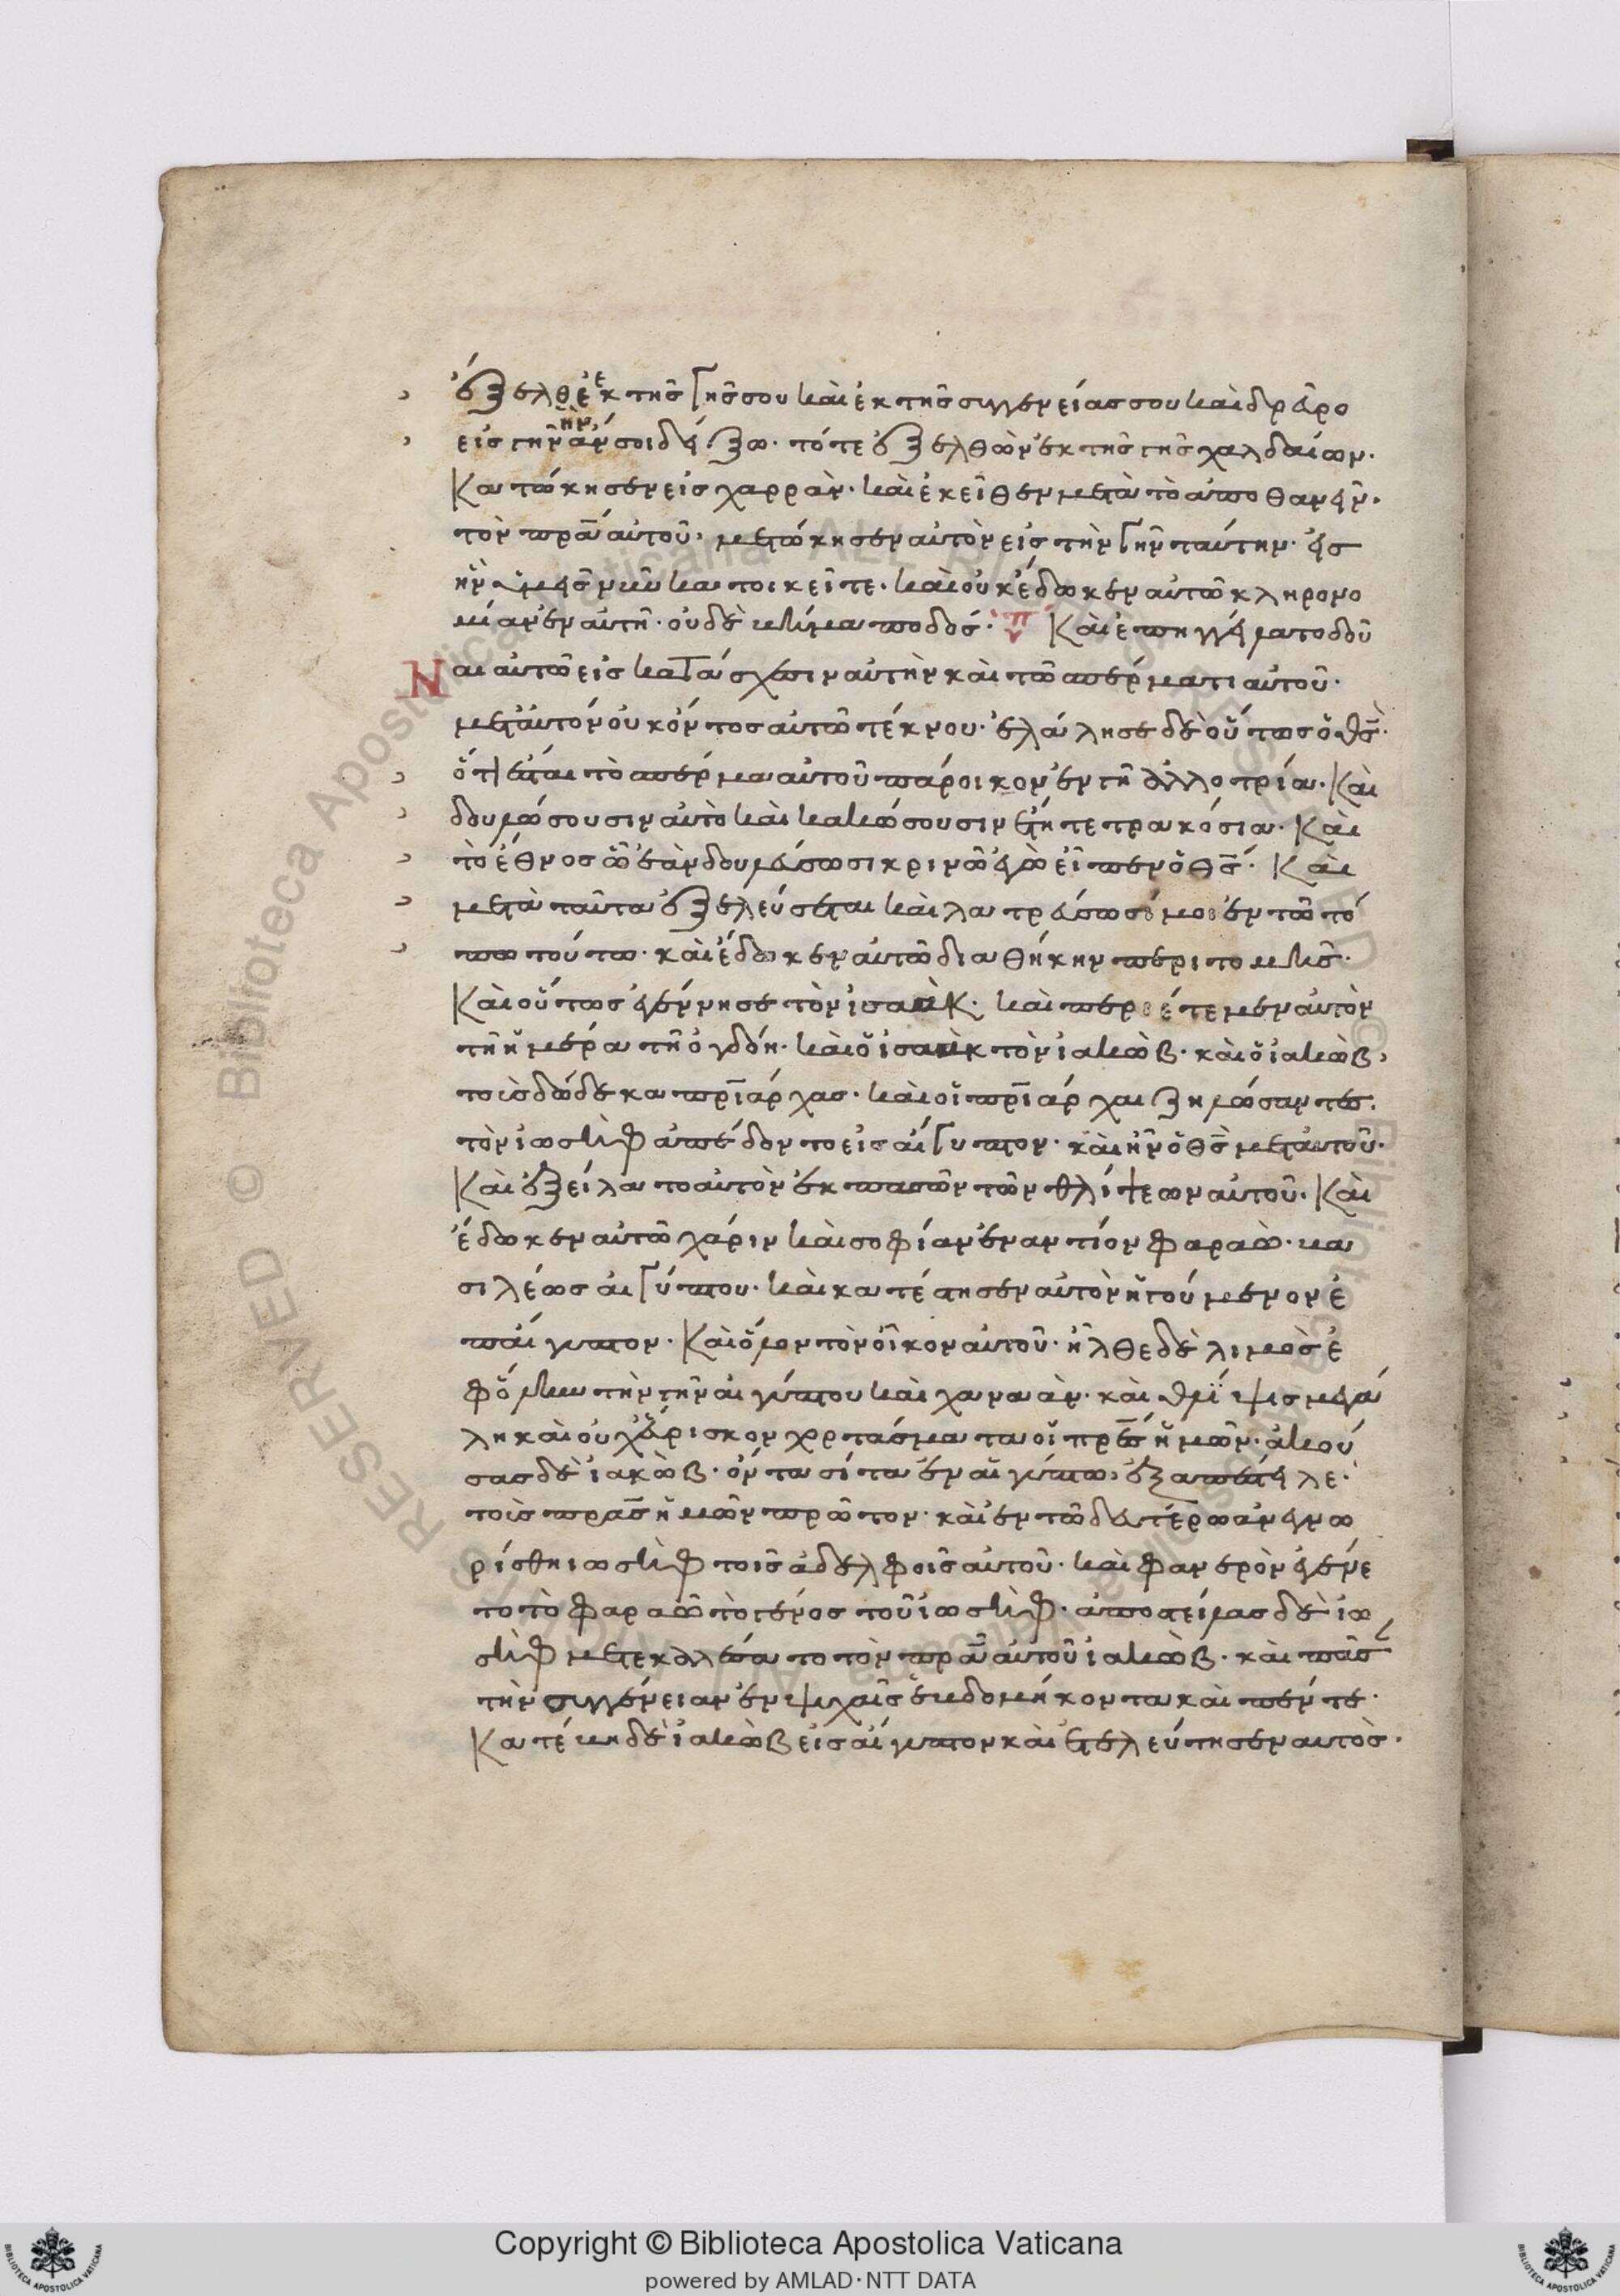 ἔξελθε ἐκ τῆς γῆς σου καὶ ἐκ τῆς συγγενείας σου καὶ δεῦρο
εἰς τὴν γῆν ἣν ἄν σοι δείξω· τότε ἐξελθὼν ἐκ τῆς γῆς χαλδαίων·
Κατώκησεν εἰς χαρράν· καὶ ἐκεῖθεν μετὰ τὸ ἀποθανεῖν·
τὸν πρ̅α αὐτοῦ, μετώκησεν αὐτὸν εἰς τὴν γῆν ταύτην· εἰς
ἣν ὑμεῖς νῦν κατοικεῖτε· καὶ οὐκ ἔδωκεν αὐτῶ κληρονο
μίαν ἐν αὐτῆ· οὐδὲ βῆμα ποδός· Καὶ ἐπηγγείλατο δοῦ
Ναι αὐτῶ εἰς κατάσχεσιν αὐτὴν καὶ τῶ σπέρματι αὐτοῦ·
μετ' αὐτὸν οὐκ ὄντος αὐτῶ τέκνου· ἐλάλησε δὲ οὕτως ὁ θ̅ς·
ὅτι ἔσται τὸ σπέρμα αὐτοῦ πάροικον ἐν γῆ ἀλλοτρία· Καὶ
δουλώσουσιν αὐτὸ καὶ κακώσουσιν ἔτη τετρακόσια· Καὶ
τὸ ἔθνος ὧ ἐὰν δουλεύσωσι κρινῶ ἐγὼ εἶπεν ὁ θ̅ς· Καὶ
μετὰ ταῦτα ἐξελεύσεται καὶ λατρεύσωσί μοι ἐν τῶ τό
πω τούτω· καὶ ἔδωκεν αὐτῶ διαθήκην περιτομῆς·
Καὶ οὕτως ἐγέννησε τὸν ἰσαὰκ· καὶ περιέτεμεν αὐτὸν
τῆ ἡμέρα τῆ ὀγδόη· καὶ ὁ ἰσαὰκ τὸν ἰακώβ· καὶ ὁ ἰακώβ,
τοὺς δώδεκα πρ̅ιάρχας· καὶ οἱ πρ̅ιάρχαι ζηλώσαντες·
τὸν ἰωσὴφ ἀπέδοντο εἰς αἴγυπτον· καὶ ἦν ὁ θ̅ς μετ' αὐτοῦ·
Καὶ ἐξείλατο αὐτὸν ἐκ πασῶν τῶν θλίψεων αὐτοῦ· Καὶ
ἔδωκεν αὐτῶ χάριν καὶ σοφίαν ἐναντίον φαραὼ· βα
σιλέως αἰγύπτου· καὶ κατέστησεν αὐτὸν ἡγούμενον ἐ
π' αἴγυπτον· Καὶ ὅλον τὸν οἶκον αὐτοῦ· ἦλθε δὲ λιμὸς ἐ
φ' ὅλην τὴν γῆν αἰγύπτου καὶ χαναάν· καὶ θλίψις μεγά
λη καὶ οὐχ εὕρισκον χορτάσματα οἱ πρ̅ες ἡμῶν· ἀκού
σας δὲ ἰακὼβ· ὄντα σίτα ἐν αἰγύπτω, ἐξαπέστειλε·
τοὺς πρ̅ας ἡμῶν πρῶτον· καὶ ἐν τῶ δευτέρω ἀνεγνω
ρίσθη ἰωσὴφ τοῖς ἀδελφοῖς αὐτοῦ· καὶ φανερὸν ἐγένε
το τὸ φαραῶ τὸ γένος τοῦ ἰωσήφ· ἀποστείλας δὲ ἰω
σὴφ μετεκαλέσατο τὸν πρ̅α αὐτοῦ ἰακώβ· καὶ πᾶσ
τὴν συγγένειαν ἐν ψυχαῖς ἑβδομήκοντα καὶ πέντε·
Κατέβη δὲ ἰακὼβ εἰς αἴγυπτον καὶ ἐτελεύτησεν αυτὸς·
Copyright © Biblioteca Apostolica Vaticana
powered by AMLAD·NTT DATA